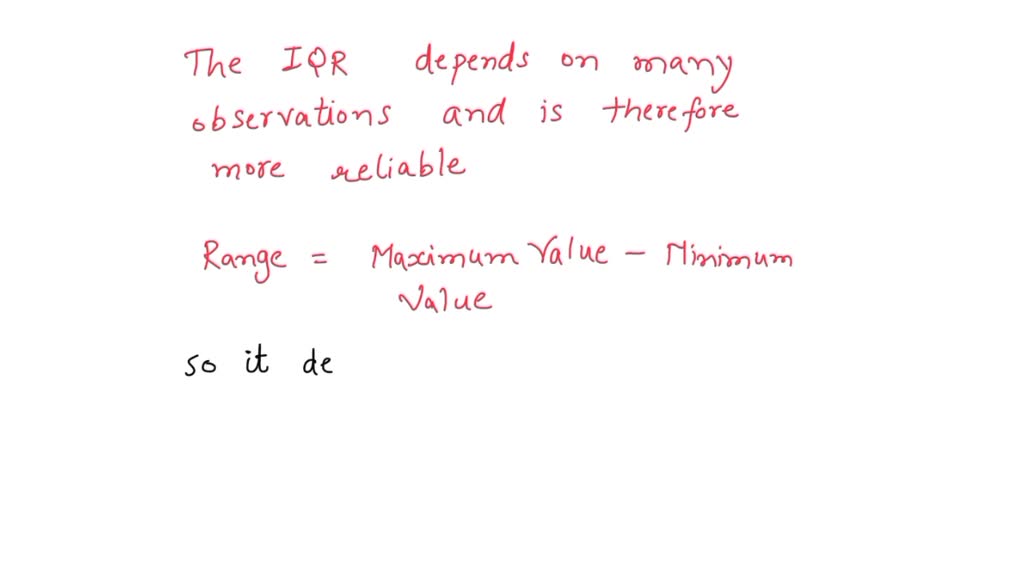 The IQR depends on many
observations and is therefore
more reliable
Range = Maximum Value - Minimum
Value
so it de